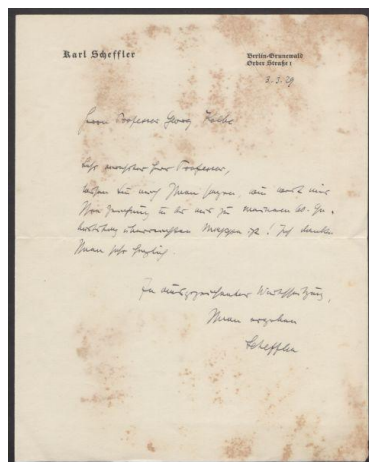 Karl Scheffler
Berlin-Grunewald
Orber Straße 1
3.3.29
Herrn Professor Georg Kolbe
Sehr verehrter Herr Professor,
lassen Sie mich Ihnen sagen, wie wert mir
Ihre Zeichnung in der mir zu meinem 60. Ge-
burtstag überreichten Mappe ist! Ich danke
Ihnen sehr herzlich.
In ausgezeichneter Wertschätzung,
Ihnen ergeben
Scheffler